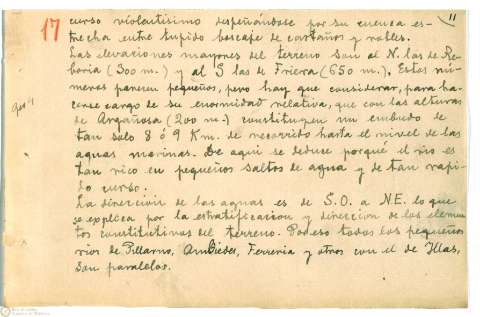 17
11
curso violentísimo despeñándose por su cuenca es-
trecha entre tupido boscaje de castaños y robles.
Las elevaciones mayores del terreno son al N. las de Re-
boria (300 m.) y al S las de Friera (650 m.). Estos nú-
meros parecen pequeños, pero hay que considerar, para ha-
cerse cargo de su enormidad relativa, que con las alturas
de Argañosa (200 m.) constituyen un embudo de
tan solo 8 ó 9 Km. de recorrido hasta el nivel de las
aguas marinas. De aqui se deduce porqué el rio es
tan rico en pequeños saltos de agua y de tan rapi-
do curso.
La direccion de las aguas es de S.O. a NE. lo que
se explica por la estratificacion y direccion de los elemen-
tos constitutivos del terreno. Por eso todos los pequeños
rios de Pillarno, Ambiedes, Ferreria y otros con el de Illas,
son paralelos.